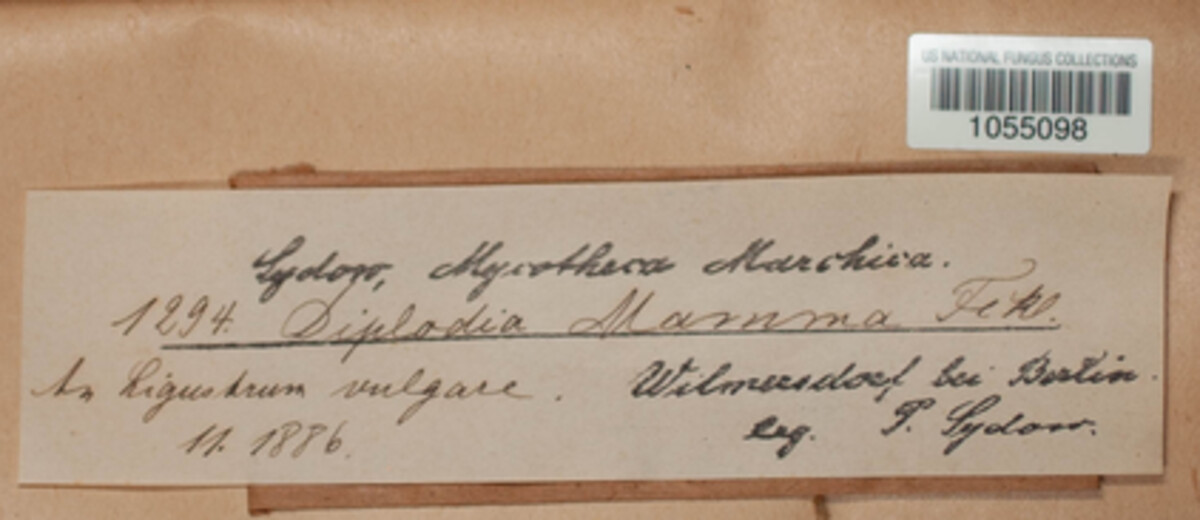 US NATIONAL FUNGUS COLLECTIONS
1055098
Sydow, Mycotheca Marchica.
1294. Diplodia Mamma Fckl.
An Ligustrum vulgare. Wilmersdorf bei Berlin.
11. 1886. leg. P. Sydow.